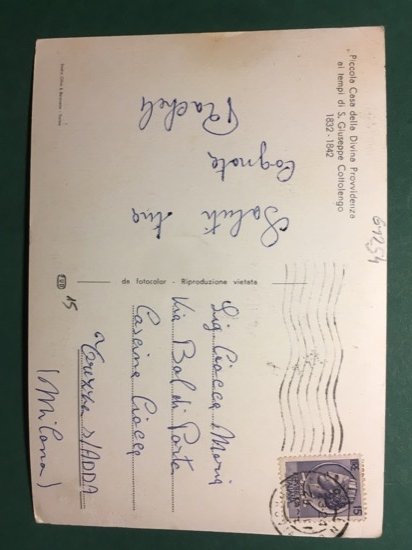 Piccola Casa della Divina Provvidenza
ai tempi di S. Giuseppe Cottolengo
1832-1842
61254
Saluti tua
Cognata
Rachele
da fotocolor - Riproduzione vietata
15
Sig. Ciocca Maria
Via Bal di Porta
Cascina Ciocca
Trezzo s/ADDA
(Milano)